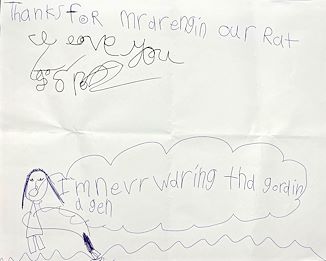 Thanks foR mrdrengin our Rat
I love you
Imnevr waring tha gordin
a gen